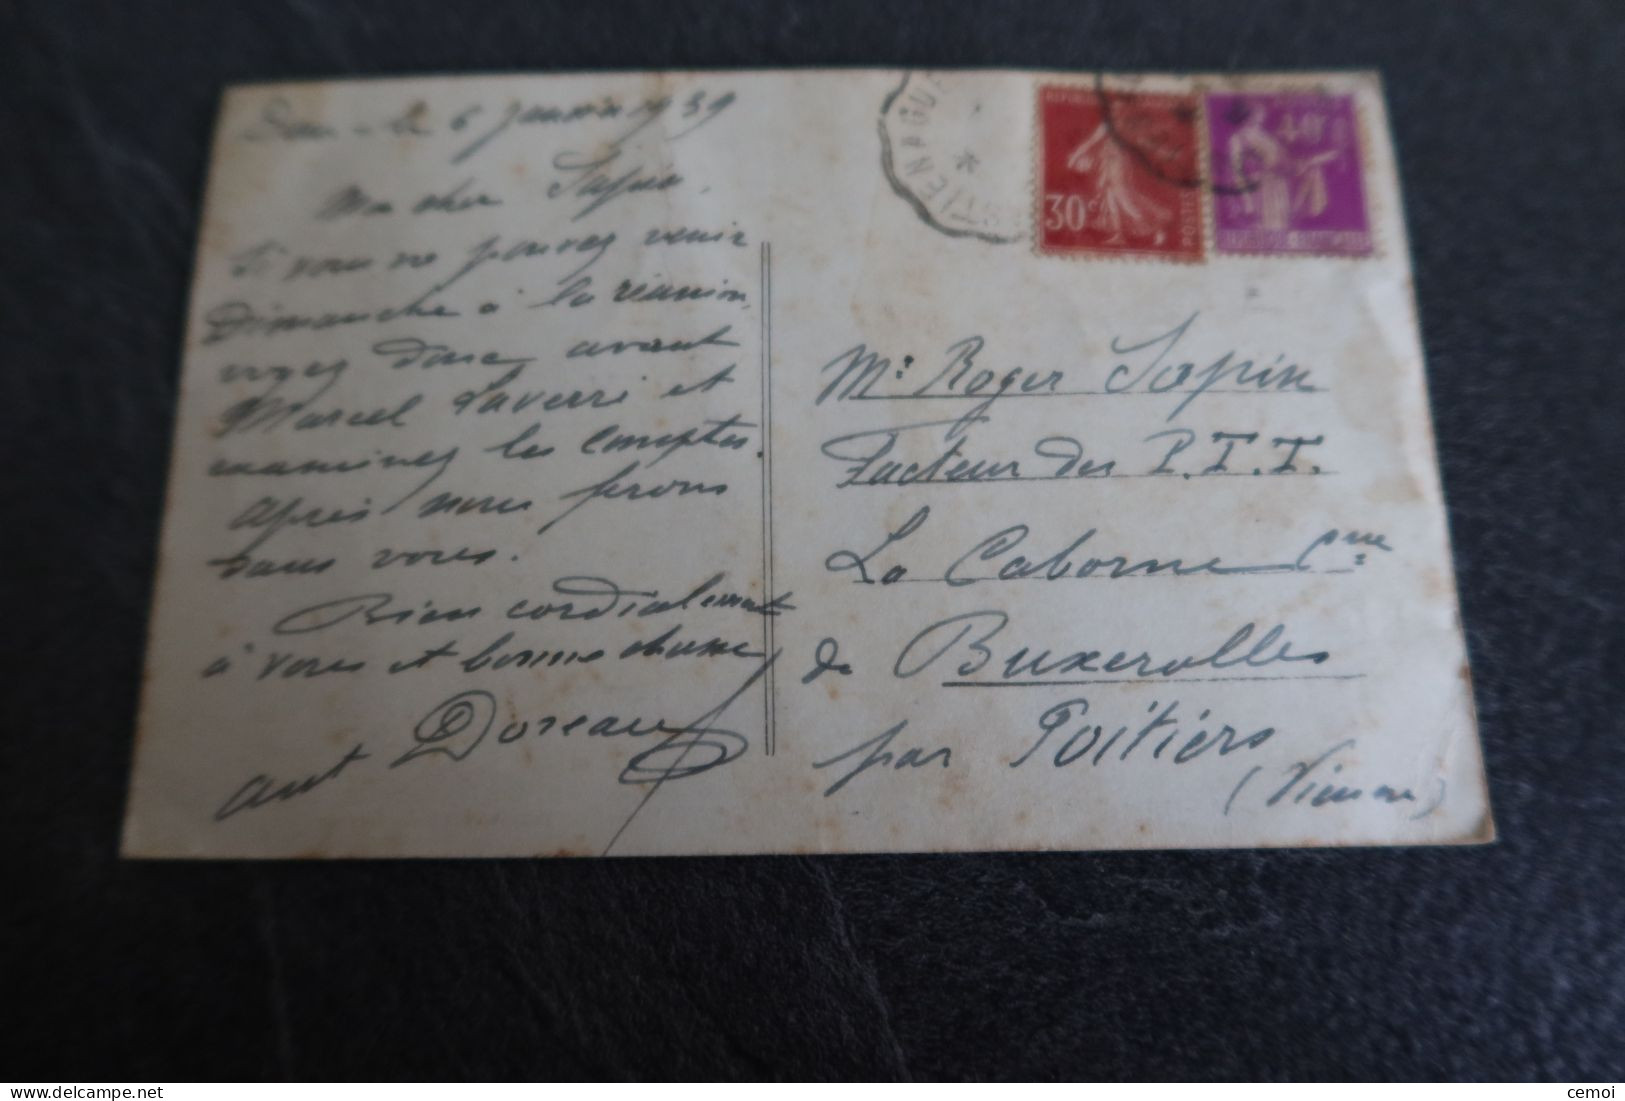 le 6 Janvier 1939
Mon cher Sapin,
Si vous ne pouvez venir
Dimanche à la réunion,
voyez donc avant
Marcel Laverré et
examinez les comptes.
Après nous ferons
sans vous.
Bien cordialement
à vous et bonne chance
Doreau
aut
TIENAGUE
30c
POSTES
40c
Mr Roger Sapin
Facteur des P.T.T.
La Caborne Cne
de Buxerolles
par Poitiers
(Vienne)
Delcampe.net
cemoi